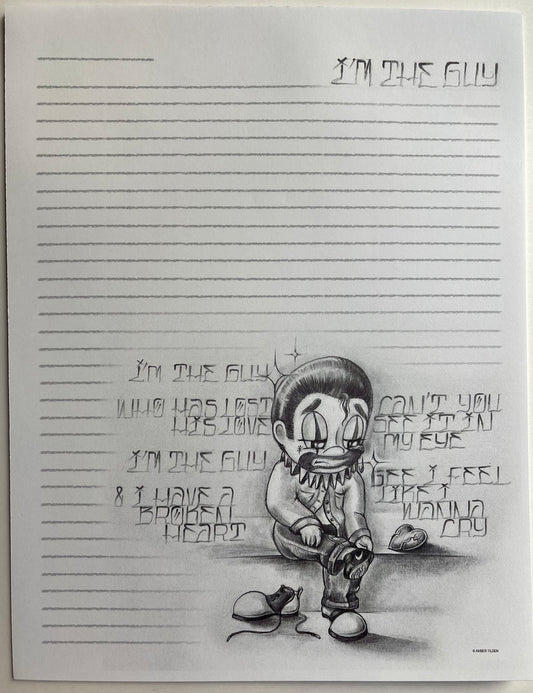 I'M THE GUY
I'M THE GUY
WHO HAS LOST
HIS LOVE
I'M THE GUY
& I HAVE A
BROKEN
HEART
CAN'T YOU
SEE IT IN
MY EYE
SEE I FEEL
LIKE I
WANNA
CRY
© AMBER TILDEN